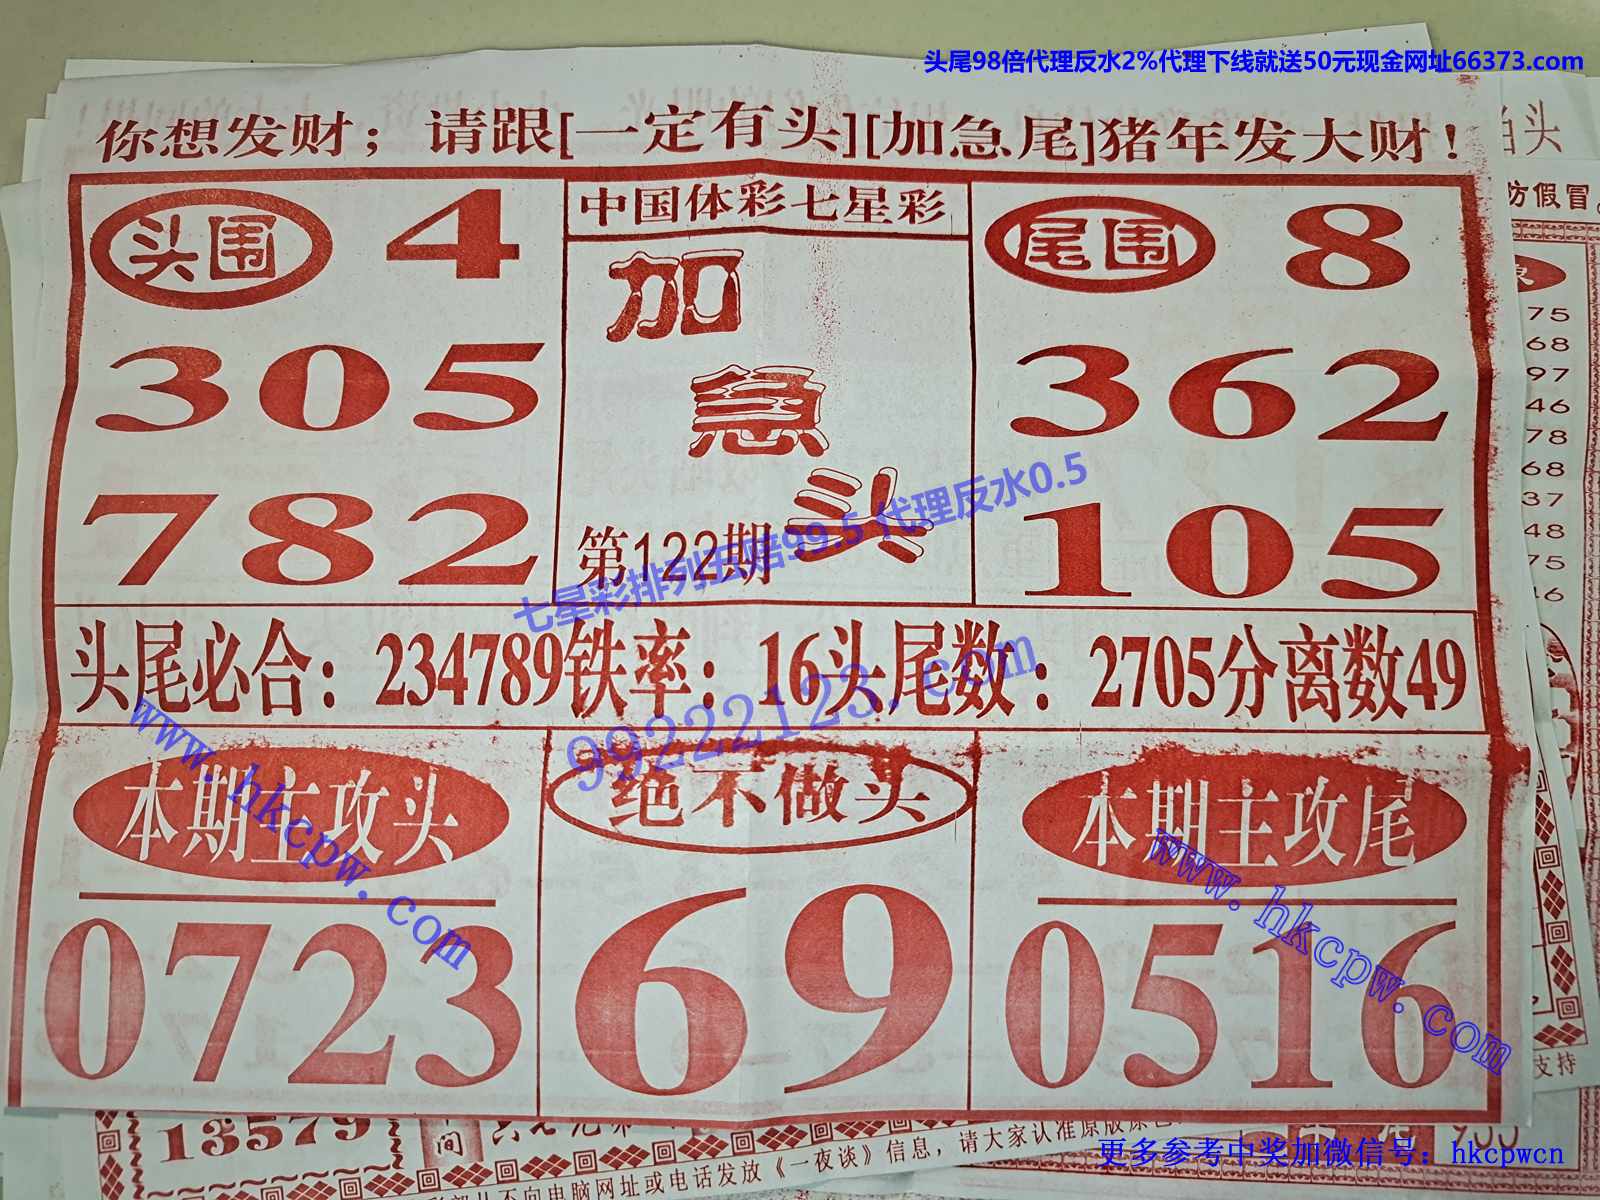 头尾98倍代理反水2%代理下线就送50元现金网址66373.com
你想发财；请跟[一定有头][加急尾]猪年发大财！
头围 4
305
782
中国体彩七星彩
加急头
第122期
尾围 8
362
105
七星彩排列五赔99.5 代理反水0.5
头尾必合：234789铁率：16头尾数：2705分离数49
99222123.com
www.hkcpw.com
www.hkcpw.com
本期主攻头
0723
绝不做头
69
本期主攻尾
0516
头
防假冒。
75
68
97
46
78
68
37
48
75
46
支持
13579
间
网址或电话发放《一夜谈》信息，请大家认准原版原色
更多参考中奖加微信号：hkcpwcn